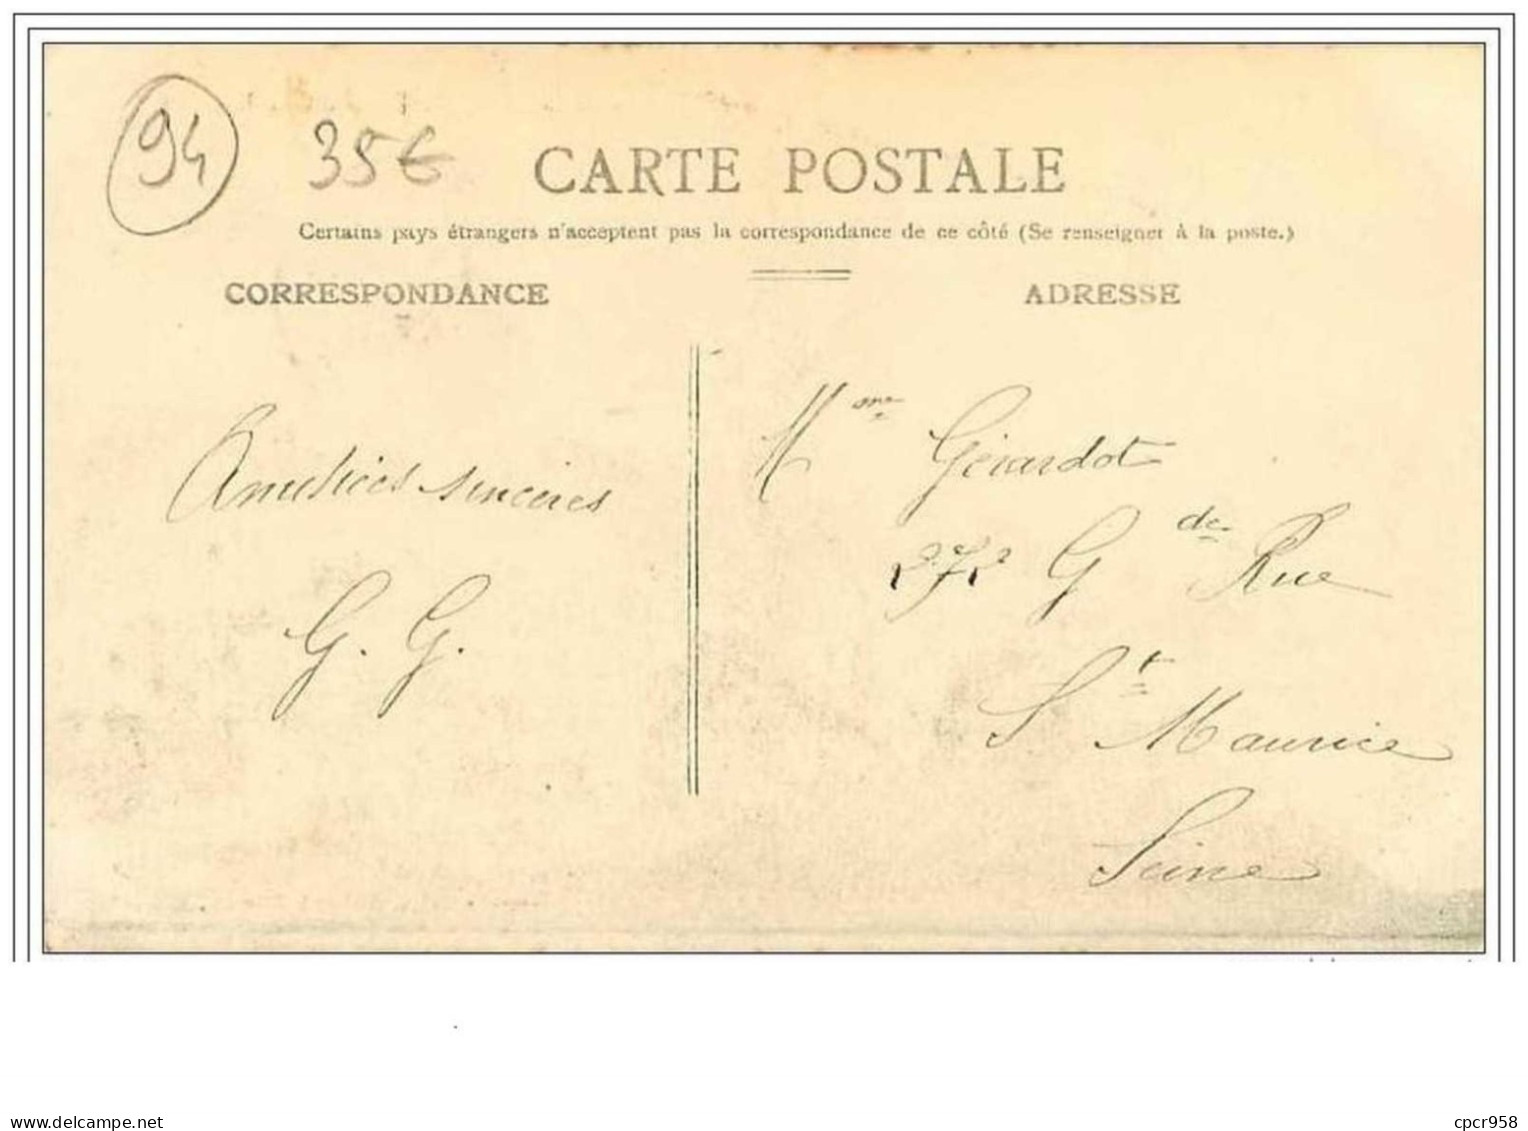 94
35€
CARTE POSTALE
Certains pays étrangers n'acceptent pas la correspondance de ce côté (Se renseigner à la poste.)
CORRESPONDANCE
ADRESSE
Amitiées sincères
G. G.
Mme Gérardot
272 Gde Rue
St Maurice
Seine
www.delcampe.net
cpcr958